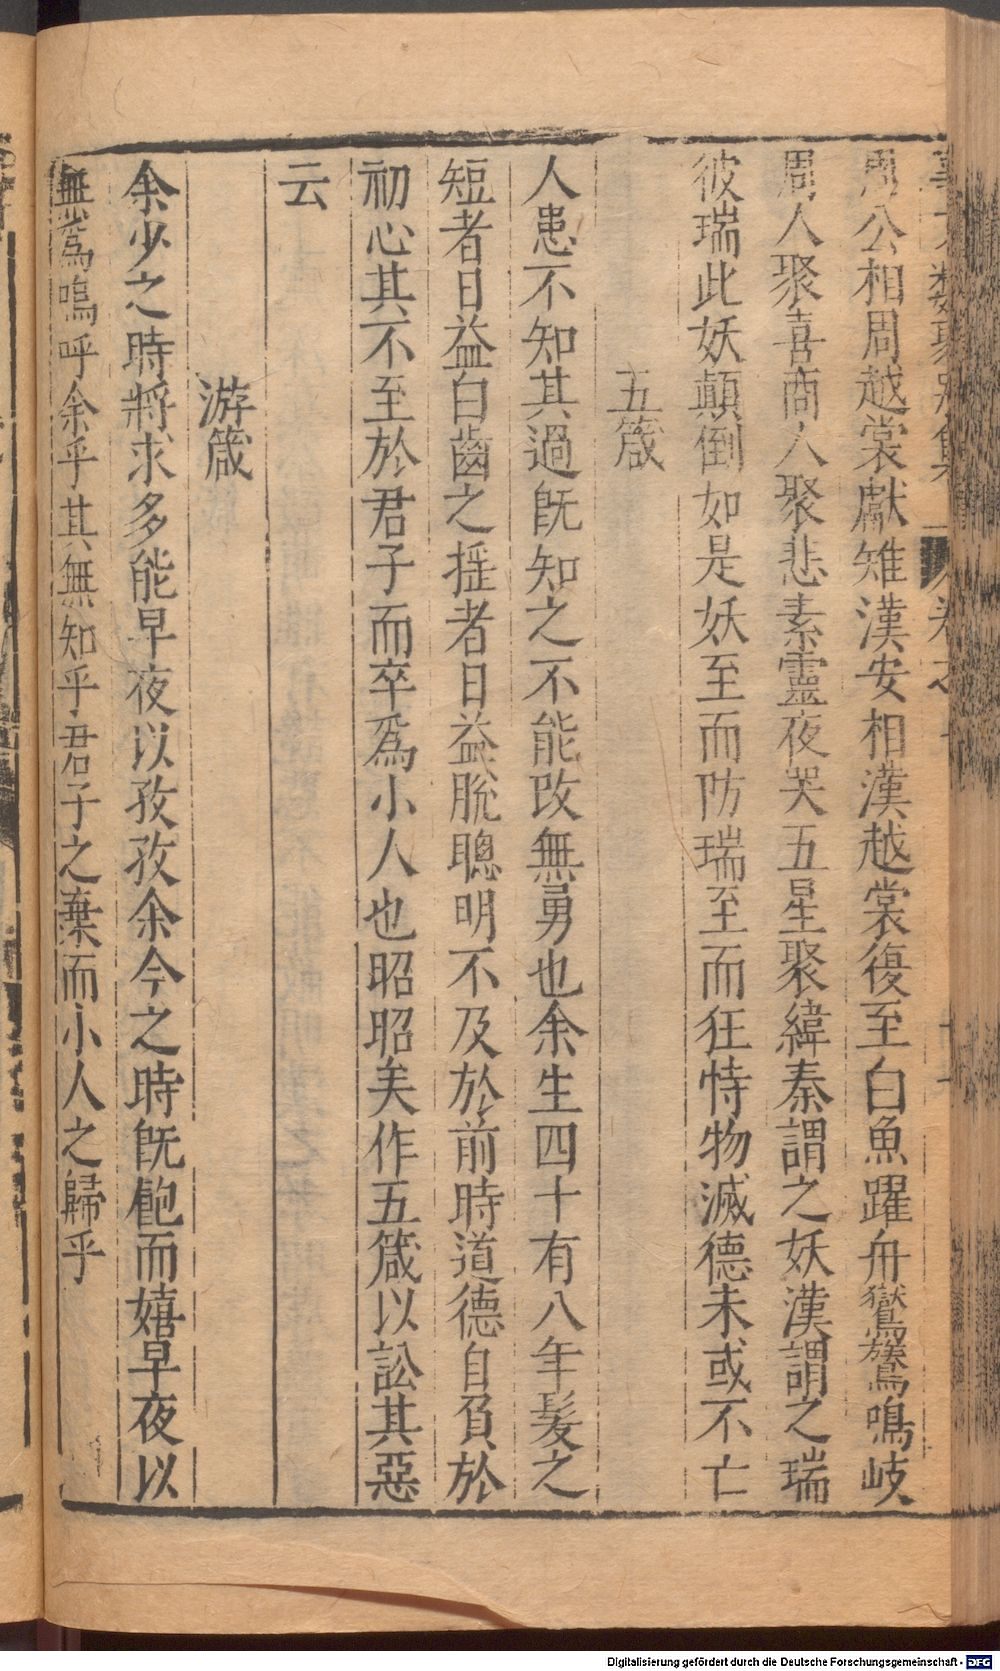 周公相周越裳獻雉漢安相漢越裳復至白魚躍舟鸑鷟鳴岐
周人聚喜商人聚悲素靈夜哭五星聚緯秦謂之妖漢謂之瑞
彼瑞此妖顛倒如是妖至而防瑞至而狂恃物滅德未或不亡
五箴
人患不知其過旣知之不能改無勇也余生四十有八年髮之
短者日益白齒之揺者日益脫聰明不及於前時道德自負於
初心其不至於君子而卒爲小人也昭昭矣作五箴以訟其惡
云
游箴
余少之時將求多能早夜以孜孜余今之時旣飽而嬉早夜以
無爲嗚呼余乎其無知乎君子之棄而小人之歸乎
Digitalisierung gefördert durch die Deutsche Forschungsgemeinschaft - DFG